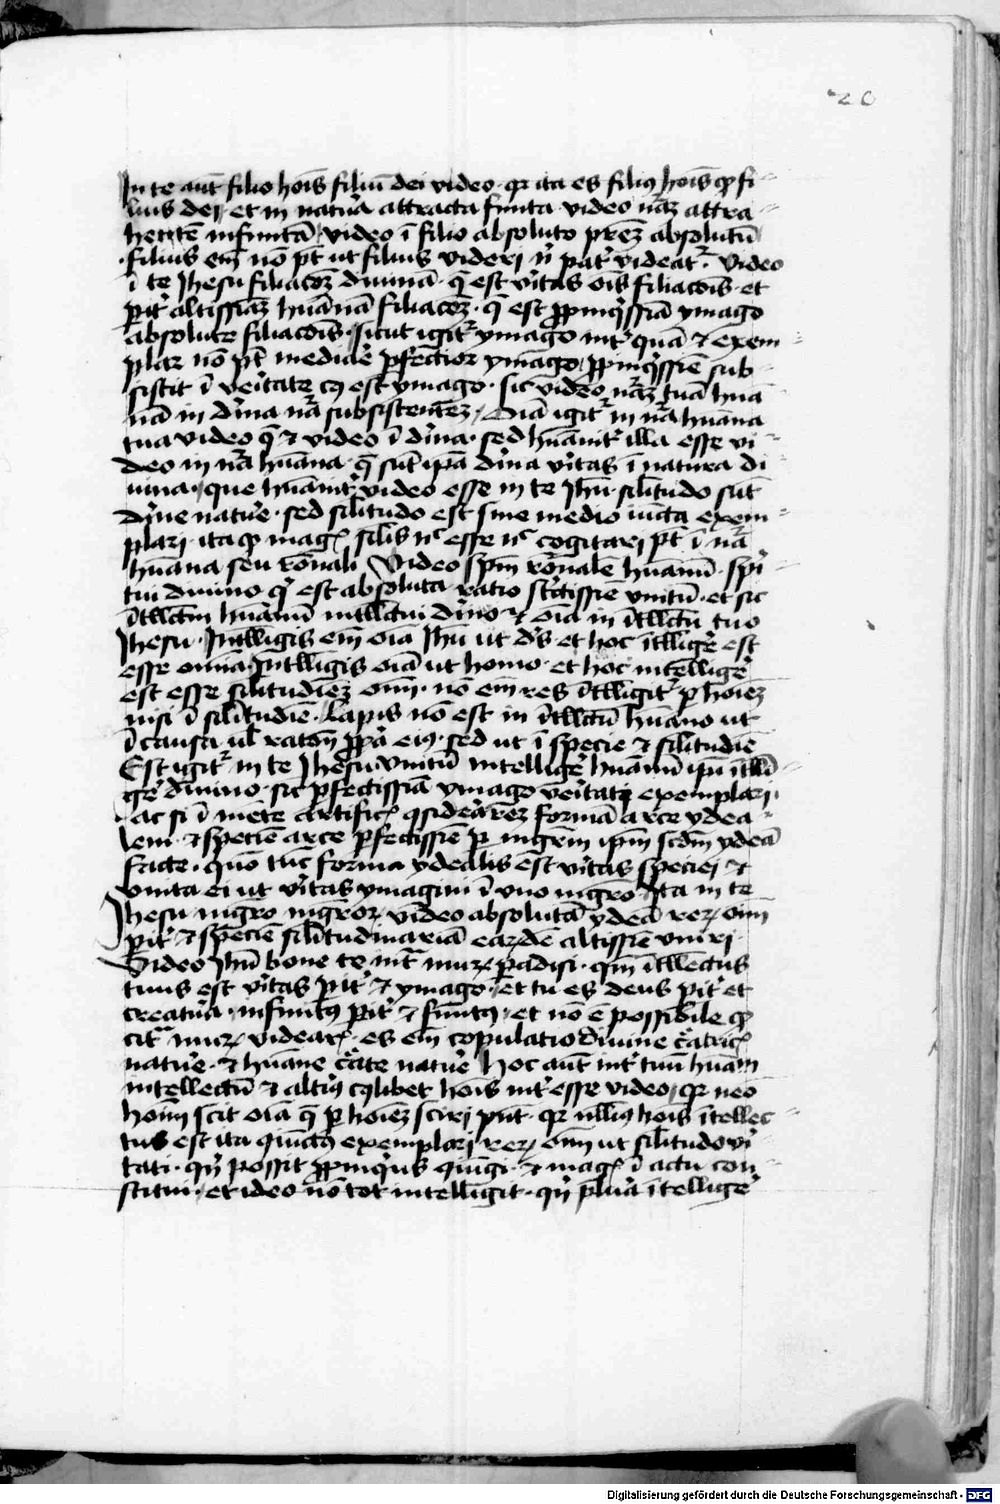 20
In te aūt filio hoīs filiū dei video · qr ita es filiꝯ hoīs qꝙ fi
lius dei · et in natura attracta finita video nāz attra
hentē infinitā / video ī filio absoluto prēz absolutū
filius em̄ nō pt̄ ut filius videri ní pāt videat᷑ · Video
ī te Jhesu filiacōz diuinā · q̄ est v̓itas oīs filiacōis · et
pit̓ altissiāz huānā filiacōz · q̄ est ꝓpinq̓ssiā ymago
absolute filiacōis · sicut igit᷑ ymago int̓ quā ⁊ exem
plar nō pt̄ mediaꝛ̓ ꝑfectior ymago / ꝓpinq̓ssie sub
sistit ī veritate cꝯ est ymago · sic video nāz tuā huā
nā in diīna nā subsistentez / Oīa igit᷑ in nā huāna
tua video q̄ ⁊ video ī diīna · sed huānit̓ illa esse vi
deo in nā huāna · q̄ sūt ipā diīna v̓itas ī natura di
uina · que huānit̓ video esse in te Jhū silitudo sūt
diīne nature · sed silitudo est sine medio iūcta exem
plari · ita qꝙ magꝭ silīs nͨ esse nͨ cogitari pt̄ ī nā
huāna seu rōnali Video spm̄ rōnalē huānū · spi
tui diuino q̓ est absoluta ratio st̓ctissie vnitū · et sic
ītllctm huānū intllctui diīno ⁊ oīa in ītllctū tuo
Jhesu · Intlligis em̄ oīa Jhū ut ds̄ et hoc ītlligeꝛ̓ est
esse omīa · Intlligis oīa ut homo · et hoc intelligeꝛ̓
est esse silitudiēz oīm · nō em̄ res ītlligit᷑ ꝑ hoīez
nisi ī silitudiē · Lapis nō est in ītllctū huāno ut
ī causa ul̄ ratōn ꝓpā eiꝯ · sed ut ī specie ⁊ silitudiē
Est igit᷑ in te Jhesu vnitū intelligeꝛ̓ huānū ipī ītlli
geꝛ̓ diuino · sic ꝑfectissiā ymago veritati exemplari
ac si ī mēte artificꝭ ꝯsidearēz formā arce ydea
lem · ⁊ speciē arce ꝑfectissiē ꝑ mgrm̄ ipm̄ scdm̄ ydeā
facte · quō tūc forma ydealis est v̓itas speciei ⁊
vnita ei ut v̓itas ymagini ī vno mgrō · Ita in te
Jhesu mgro mgroꝝ video absolutā ydeā reꝝ oīm
pit̓ ⁊ speciē silitudinariā eaꝝdē altissie vniri
Video Jhū bone te int̓ muꝝ padisi · qm̄ ītllectus
tuus est v̓itas pit̓ ⁊ ymago · et tu es deus pit̓ et
creatura · infinitꝯ pit̓ ⁊ finitꝯ · et nō ē possibile qꝙ
cit̓ muꝝ videarꝭ · es em̄ copulatio diuine cᷓatricꝭ
nature · ⁊ huāne cᷓate nature Hoc aūt int̓ tuū huām
intellectū ⁊ altiꝯ cꝯlibet hoīs int̓esse video / qr neō
hoīm scit oīa q̄ ꝑ hoīez sciri pn̄t · qr nlliꝯ hoīs ītellec
tus est ita ꝯiūctꝯ exemplari reꝝ oīm ut silitudo v̓i
tati · qn̄ possit ꝓpinq̓us ꝯiūgi · ⁊ magꝭ ī actu con
stitui · et ideo nō tot intelligit · qn̄ plura ītelligeꝛ̓
Digitalisierung gefördert durch die Deutsche Forschungsgemeinschaft - DFG